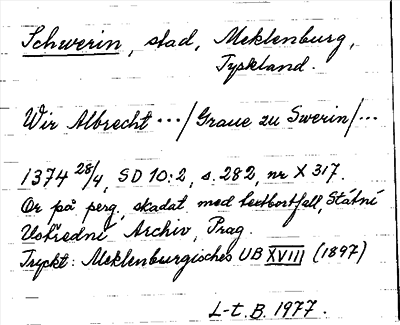 Schwerin, stad, Meklenburg,
Tyskland.
Wir Albrecht ... / Graue zu Swerin / ...
1374 28/4, SD 10:2, s. 282, nr X 317.
Or på perg, skadat med textbortfall, Státní
Ustředni Archiv, Prag.
Tryckt: Meklenburgisches UB XVIII (1897)
L-t. B. 1977.